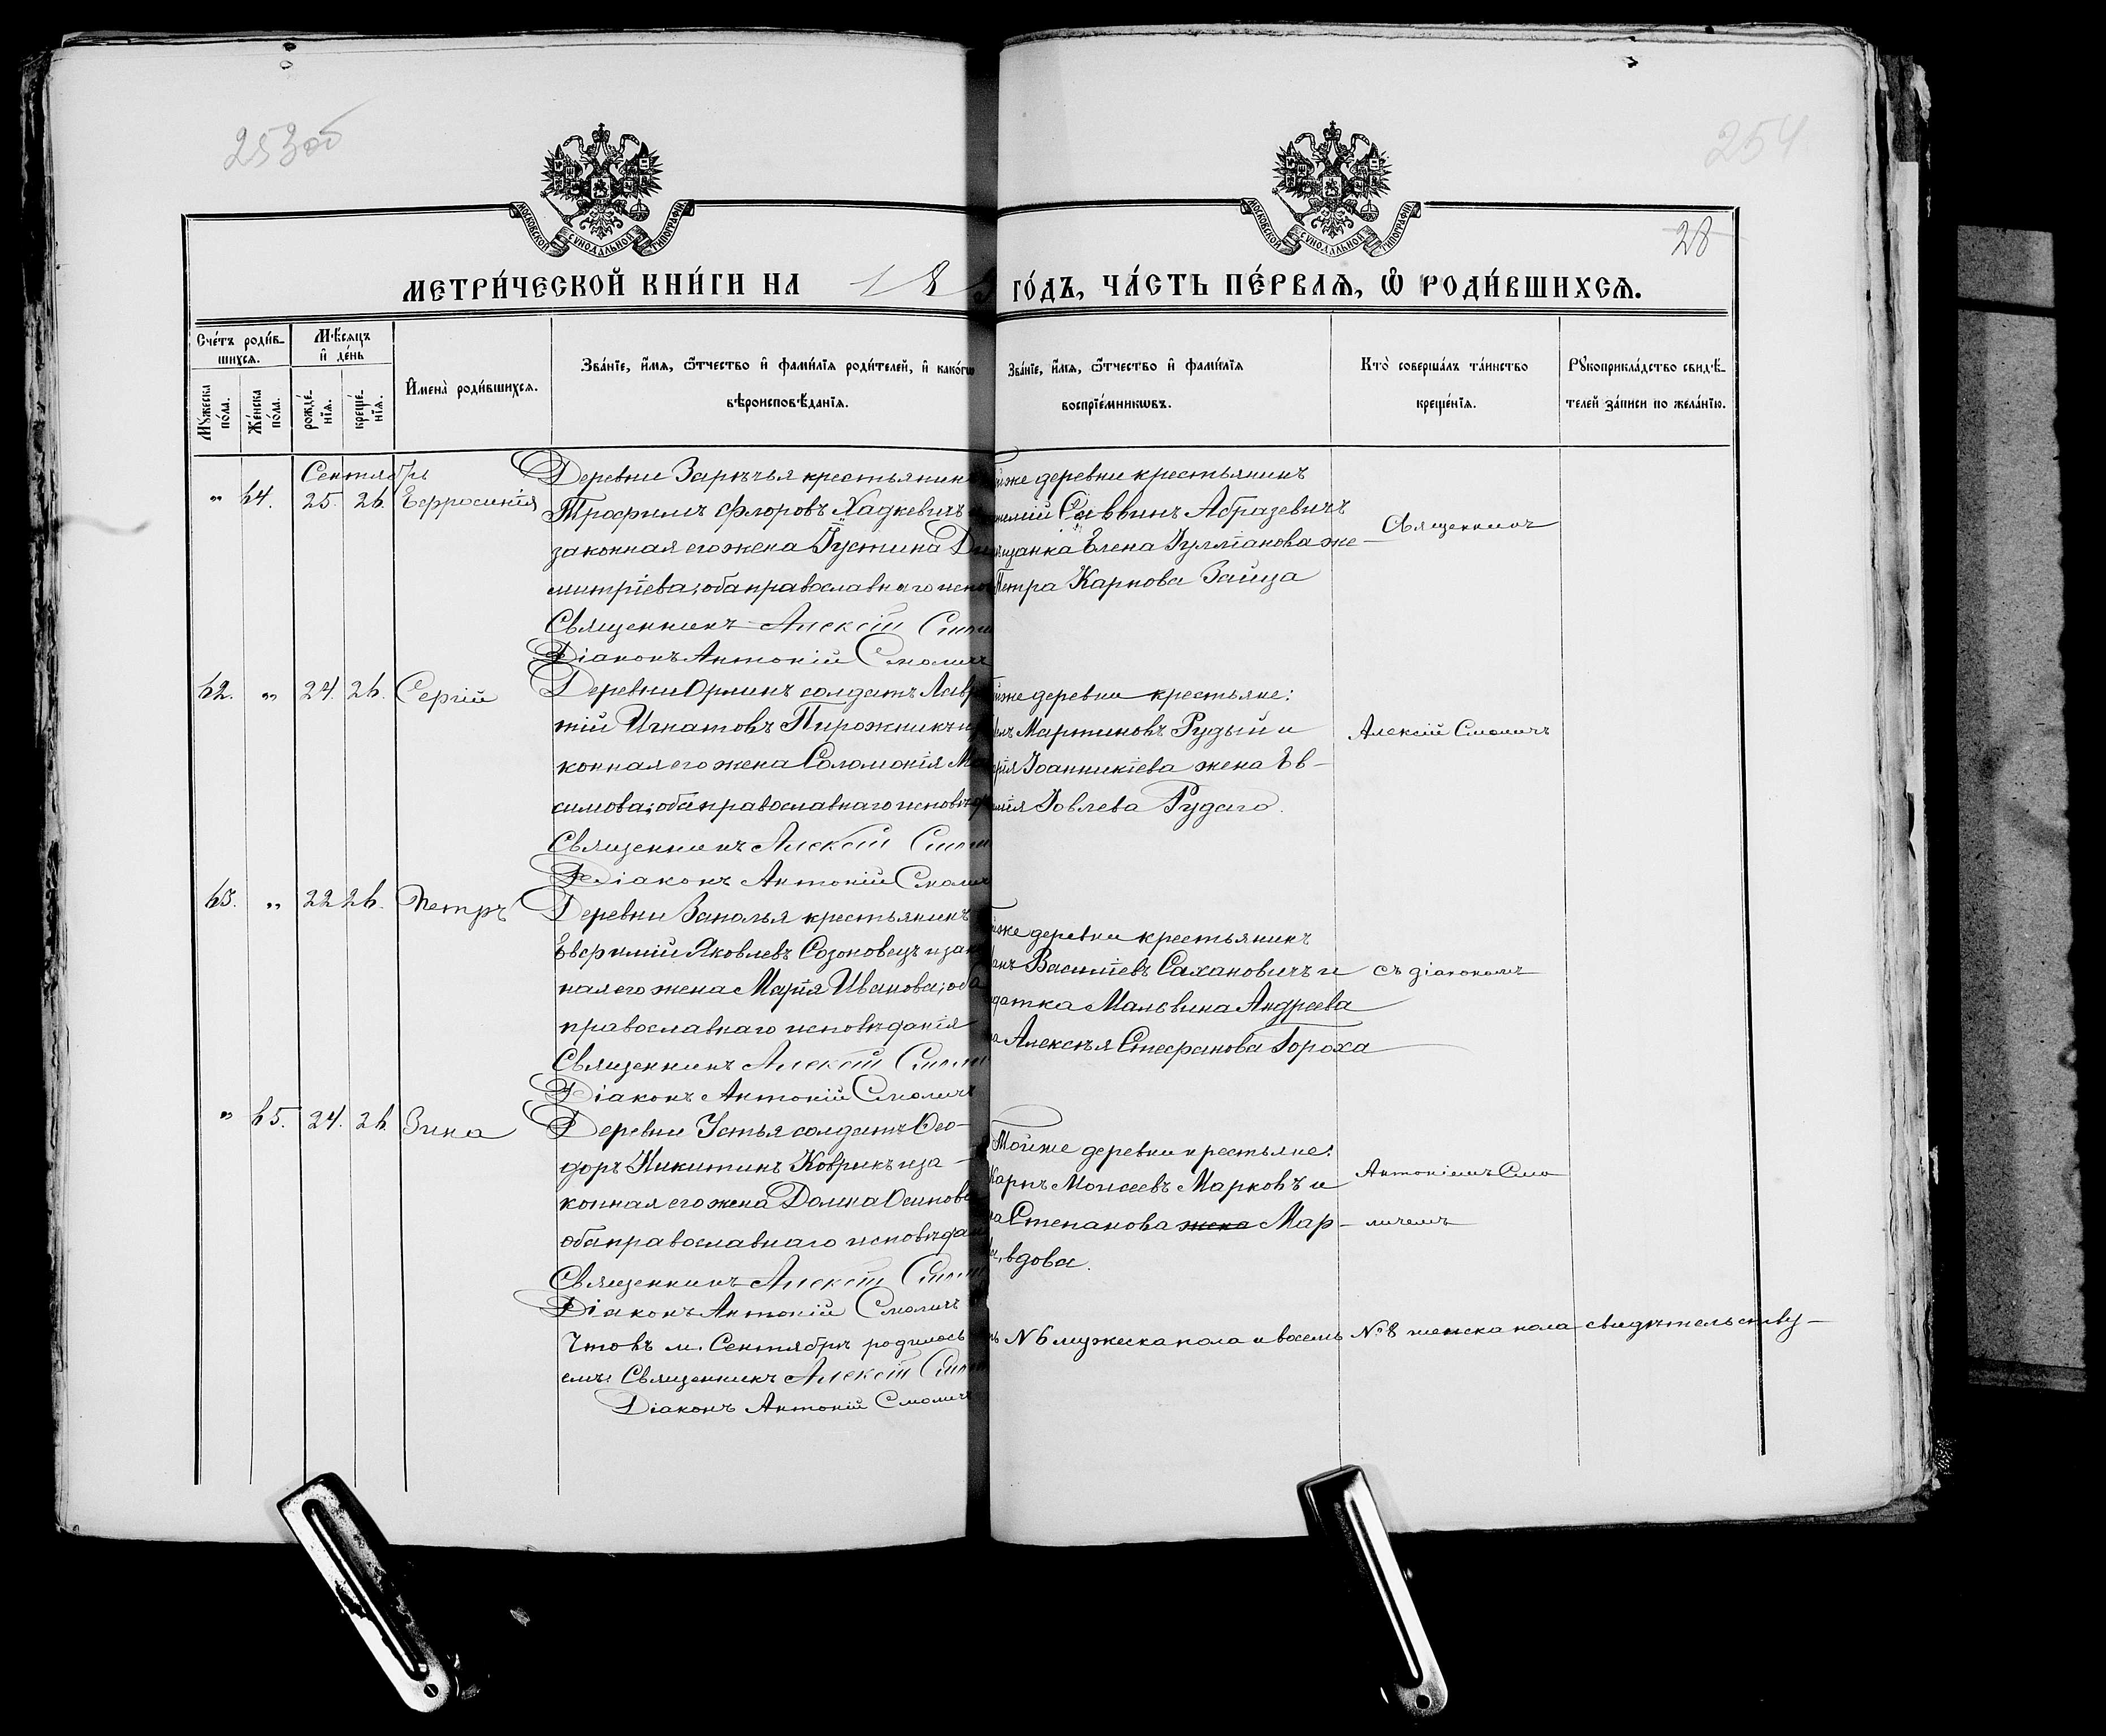 253об
254
28
МОСКОВСКОЙ СѴНОДАЛЬНОЙ ТИПОГРАФІИ
МОСКОВСКОЙ СѴНОДАЛЬНОЙ ТИПОГРАФІИ
МЕТРИ́ЧЕСКОЙ КНИ́ГИ НА 18
ГО́ДЪ, ЧА́СТЬ ПЕ́РВАѦ, Ѡ҆ РОДИ́ВШИХСѦ.
Сче́тъ роди́в-
шихсѧ.
Мꙋжеска по́ла.
Же́нска по́ла.
Мѣ́сѧцъ и҆ де́нь
рожде́-нїѧ.
креще́-нїѧ.
И҆мена̀ роди́вшихсѧ.
Зва́нїе, и҆́мѧ, ѻ҆́тчество и҆ фами́лїѧ роди́телей, и҆ како́гѡ
вѣроисповѣ́данїѧ.
Зва́нїе, и҆́мѧ, ѻ҆́тчество и҆ фами́лїѧ
воспрїе́мникѡвъ.
Кто̀ соверша́лъ та́инство
креще́нїѧ.
Рꙋкоприкла́дство свидѣ́-
телей за́писи по жела́нїю.
Сентябрь
" 64. 25. 26. Ефросинія
Деревни Зарѣчья крестьянинъ
Трофимъ Флоровъ Хадкевичъ
законная его жена Іустина Ди
митріева; оба православнаго испов
Священникъ Алексій Смол
Діаконъ Антоній Смоличъ
тойже деревни крестьянинъ
Саввинъ Абразевичъ
Елена Іуліанова же-
Петра Карпова Зайца
Священникъ
62. " 24. 26. Сергій
Деревни Орлинъ солдатъ Лавр
тій Игнатовъ Пирожникъ и
конная его жена Соломонія Ма
симова; оба православнаго исповѣд
Священникъ Алексій Смол
Діаконъ Антоній Смолич
тойже деревни крестьяне:
Мартиновъ Рудый и
Іоанникіева жена Ев-
Іовлева Рудаго.
Алексій Смоличъ
63. " 22 26. Петръ
Деревни Заполья крестьянинъ
Евфимій Яковлевъ Созоновецъ и зак
ная его жена Марія Иванова; оба
православнаго исповѣданія
Священникъ Алексій Смол
Діаконъ Антоній Смоличъ
тойже деревни крестьянинъ
Василіевъ Саханович и
Мальвина Андреева
Алексѣя Стефанова Гороха
съ діакономъ
" 65. 24. 26. Зина
Деревни Устья солдатъ Ѳео-
доръ Никитинъ Коврикъ и за-
конная его жена Домна Осипова
оба православнаго исповѣдан
Священникъ Алексій Смол
Діаконъ Антоній Смоличъ
Тойже деревни крестьяне:
Карпъ Моисеевъ Марковъ и
Степанова жена Мар-
вдова.
Антоніемъ Смо
личемъ
Что въ м. Сентябрѣ родилось
N 6 мужеска пола и восемь № 8 женска пола свидѣтельству-
емъ: Священникъ Алексій Смол
Діаконъ Антоній Смоличъ